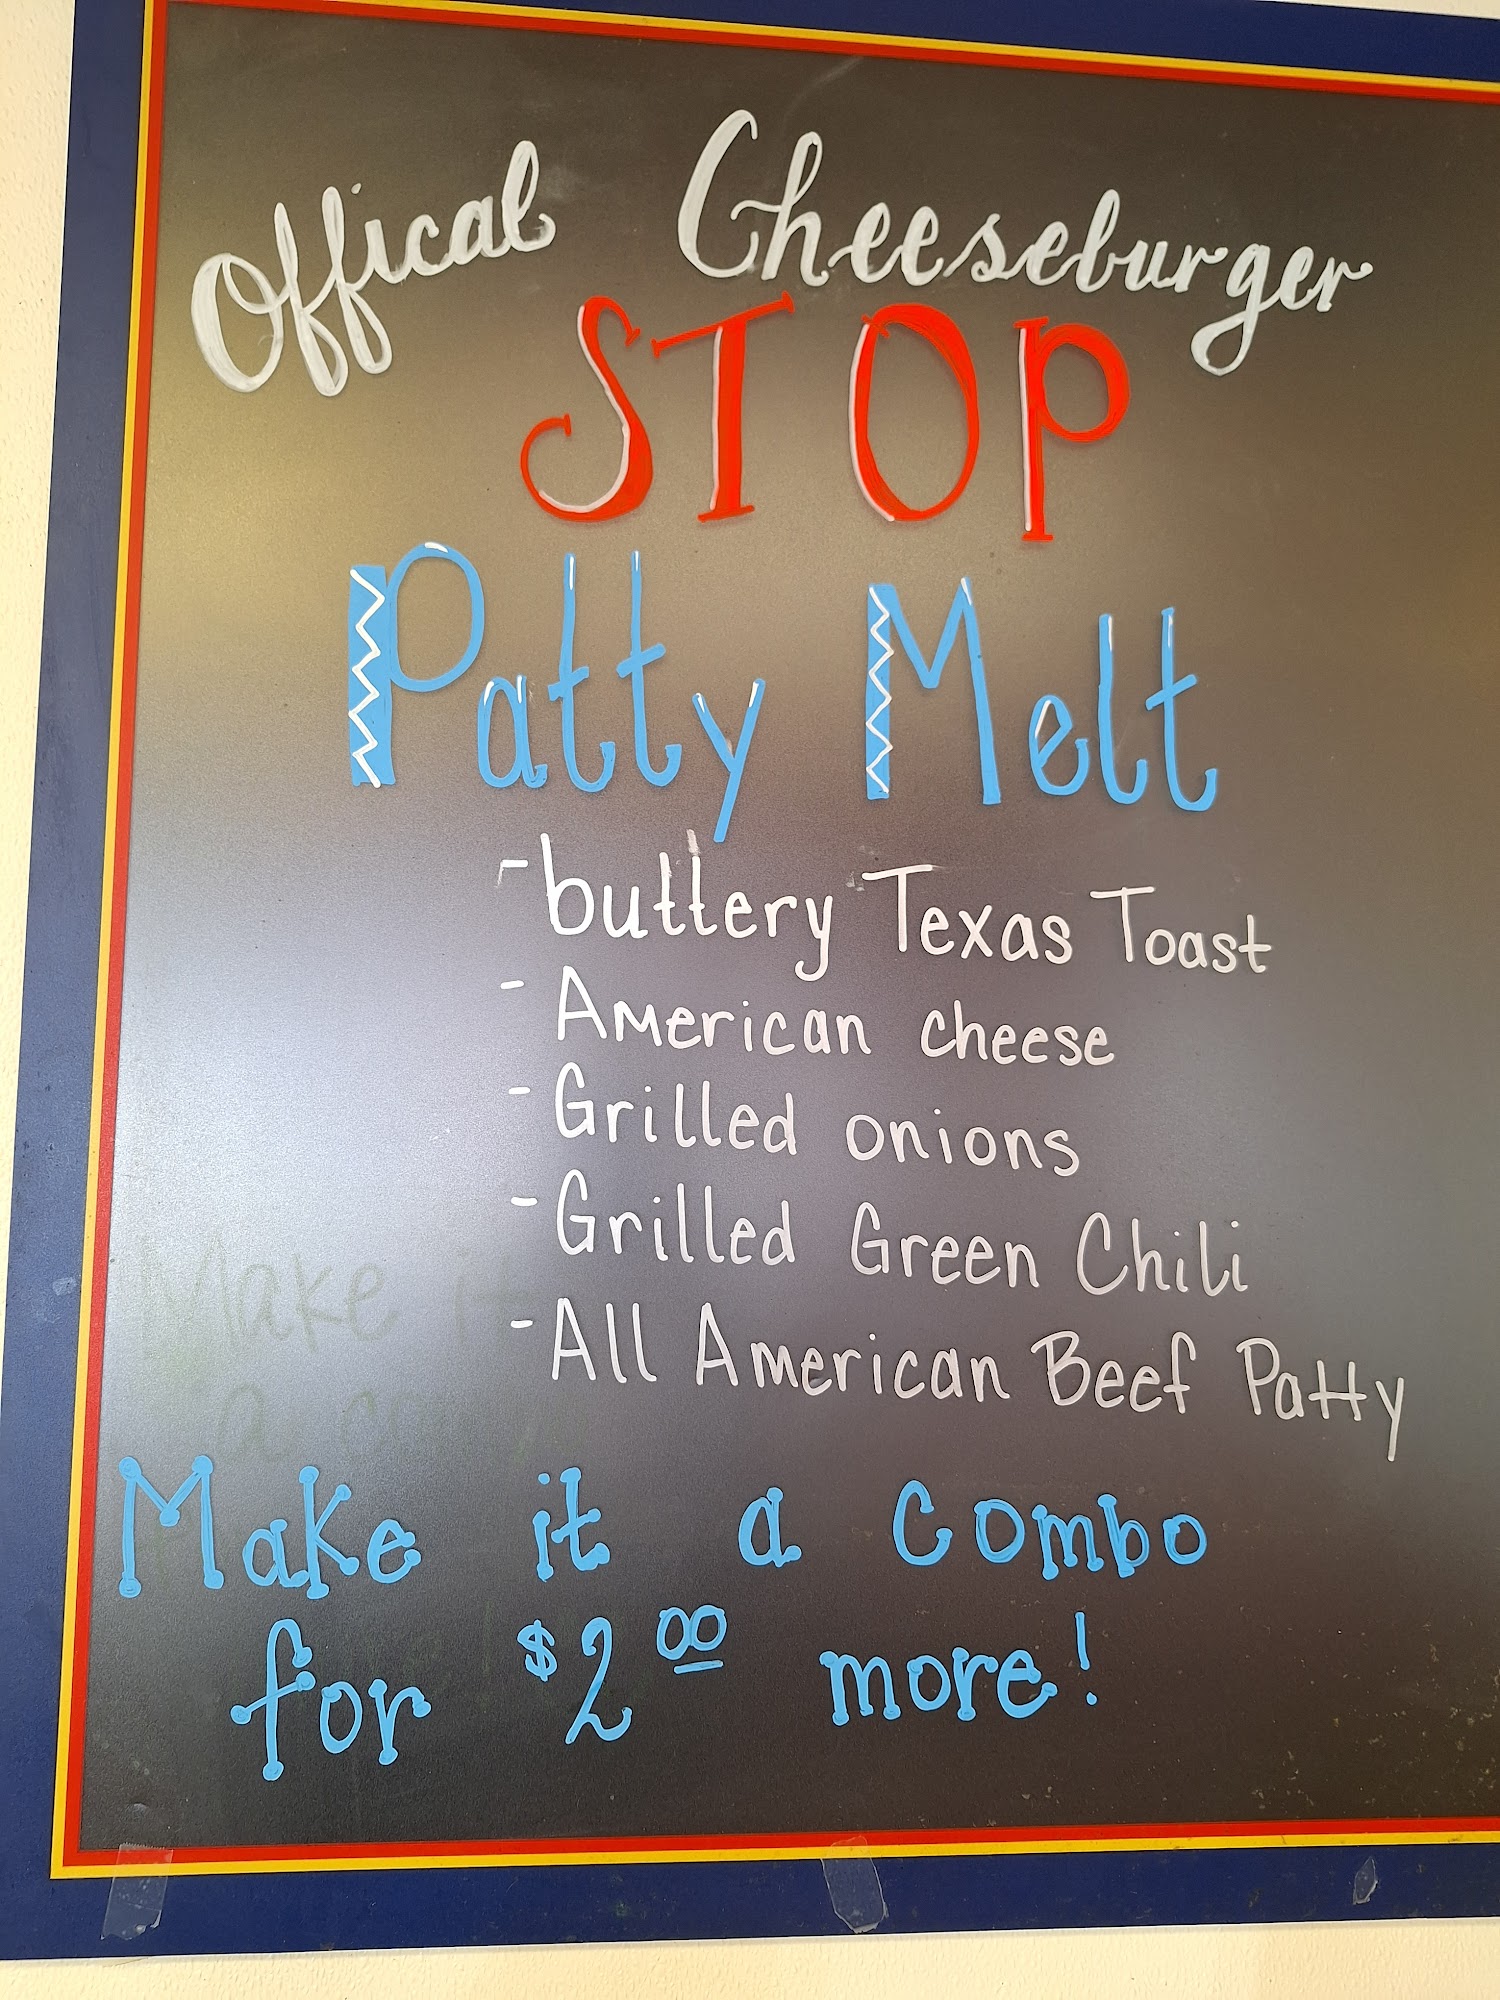 Offical Cheeseburger
STOP
Patty Melt
- buttery Texas Toast
- American cheese
- Grilled onions
- Grilled Green Chili
- All American Beef Patty
Make it
a
Make it a combo
for $2.00 more!